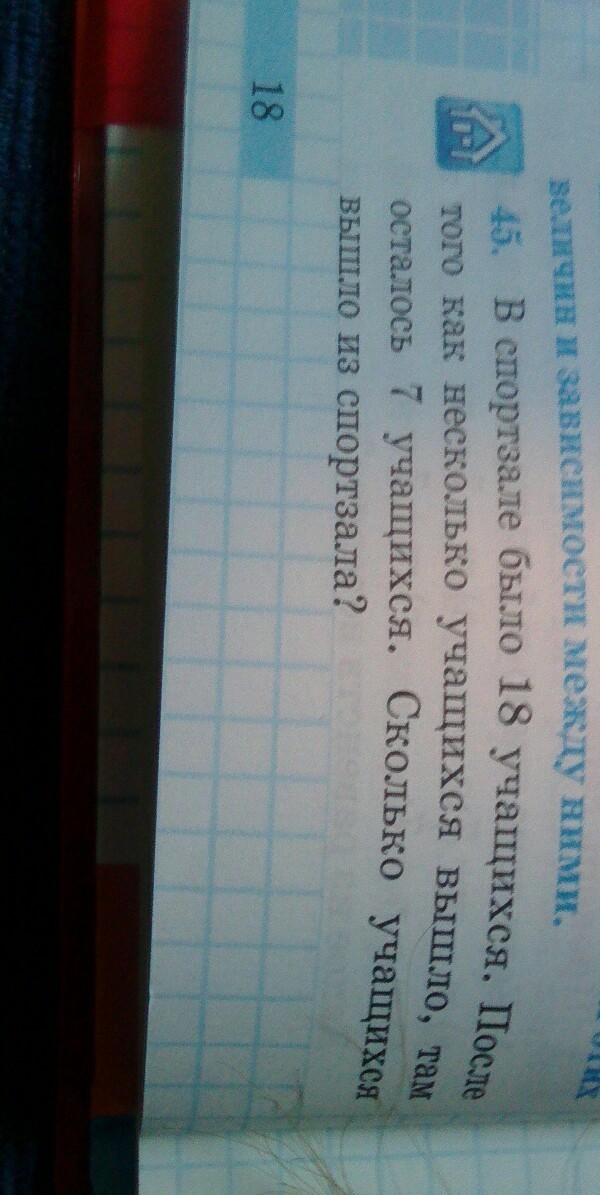 величин и зависимости между ними.
45. В спортзале было 18 учащихся. После
того как несколько учащихся вышло, там
осталось 7 учащихся. Сколько учащихся
вышло из спортзала?
18